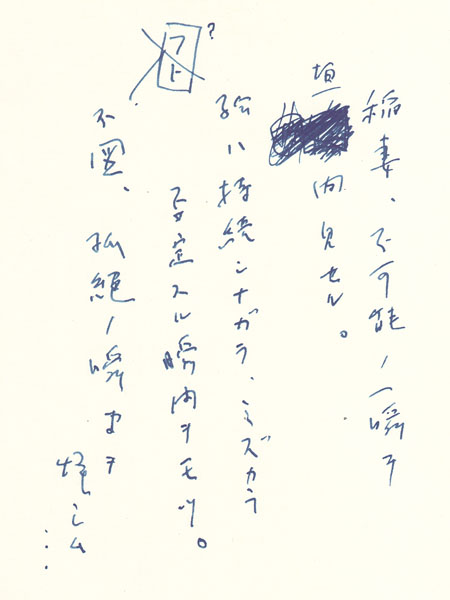 稲妻、不可能ノ一瞬ヲ
垣間見セル。
絵ハ持続シナガラ、ミズカラ
否定スル瞬間ヲモツ。
フト?
不図、孤絶ノ瞬間ヲ